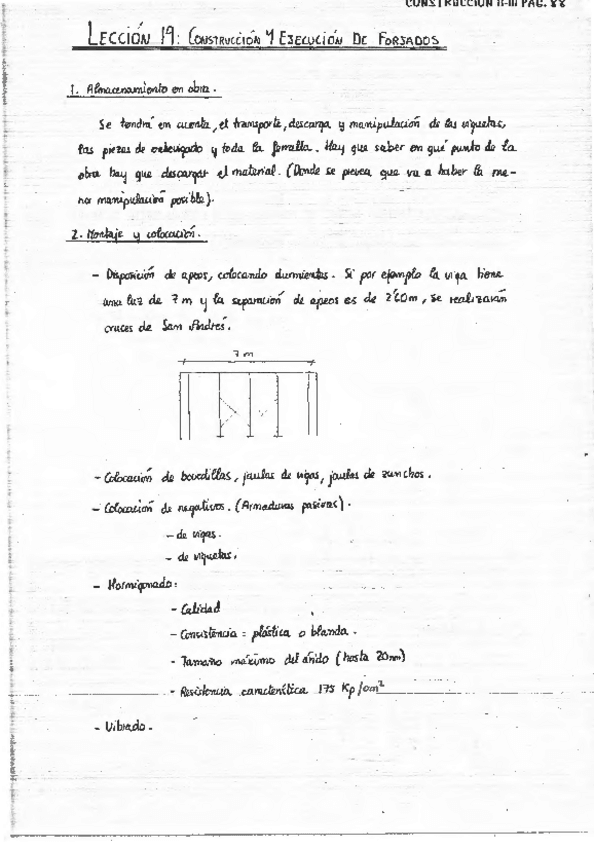 CONSTRUCCION II-III PAG. 88
LECCIÓN 19: CONSTRUCCIÓN Y EJECUCIÓN DE FORJADOS
1. Almacenamiento en obra.
Se tendrá en cuenta, el transporte, descarga y manipulación de las viguetas,
las piezas de entrevigado y toda la ferralla. Hay que saber en qué punto de la
obra hay que descargar el material. (Donde se prevea que va a haber la me-
nor manipulación posible).
2. Montaje y colocación.
- Disposición de apeos, colocando durmientes. Si por ejemplo la viga tiene
una luz de 7 m y la separación de apeos es de 2'60 m, se realizarán
cruces de San Andrés.
7 m
- Colocación de bovedillas, jaulas de vigas, jaulas de zunchos.
- Colocación de negativos. (Armaduras pasivas).
- de vigas.
- de viguetas.
- Hormigonado:
- Calidad
- Consistencia = plástica o blanda.
- Tamaño máximo del árido (hasta 20mm)
- Resistencia característica 175 Kp/cm²
- Vibrado.